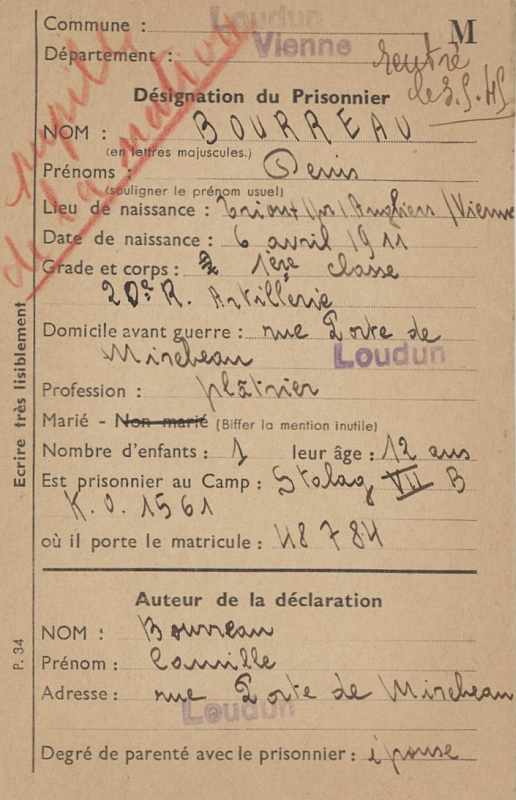 Commune : Loudun
M
Département : Vienne
rentré
le 3.5.45
pupille
de la nation
Désignation du Prisonnier
NOM : BOURREAU
(en lettres majuscules.)
Prénoms : Denis
(souligner le prénom usuel)
Lieu de naissance : /Vienne
Date de naissance : 6 avril 1911
Grade et corps : 2 1ère classe
20e R. Artillerie
Domicile avant guerre : rue Porte de
Mirebeau Loudun
Profession : plâtrier
Marié - Non marié (Biffer la mention inutile)
Nombre d'enfants : 1 leur âge : 12 ans
Est prisonnier au Camp : Stalag VII B
K.O. 1561
où il porte le matricule : 48784
Auteur de la déclaration
NOM : Bourreau
Prénom : Camille
Adresse : rue Porte de Mirebeau
Loudun
Degré de parenté avec le prisonnier : épouse
Ecrire très lisiblement
P. 34